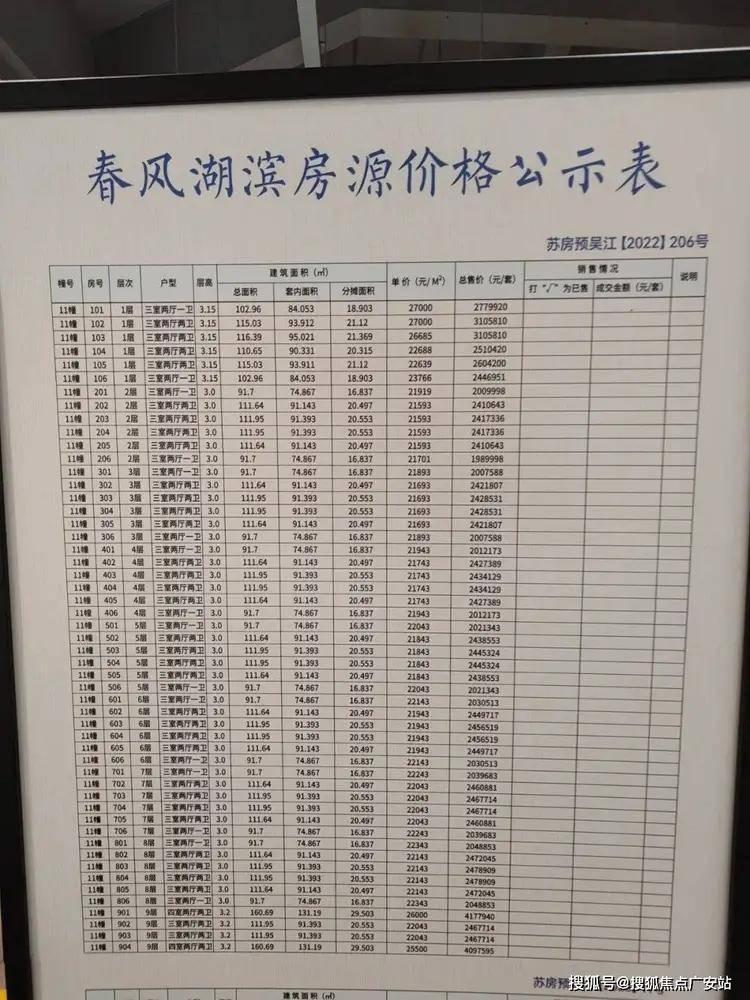 春风湖滨房源价格公示表
苏房预吴江【2022】206号
幢号 房号 层次 户型 层高 建筑面积（㎡） 单价（元/M²） 总售价（元/套） 销售情况 说明
总面积 套内面积 分摊面积 打“√”为已售 成交金额（元/套）
11幢 101 1层 三室两厅一卫 3.15 102.96 84.053 18.903 27000 2779920
11幢 102 1层 三室两厅两卫 3.15 115.03 93.912 21.12 27000 3105810
11幢 103 1层 三室两厅两卫 3.15 116.39 95.021 21.369 26685 3105810
11幢 104 1层 三室两厅两卫 3.15 110.65 90.331 20.315 22688 2510420
11幢 105 1层 三室两厅两卫 3.15 115.03 93.911 21.12 22639 2604200
11幢 106 1层 三室两厅一卫 3.15 102.96 84.053 18.903 23766 2446951
11幢 201 2层 三室两厅一卫 3.0 91.7 74.867 16.837 21919 2009998
11幢 202 2层 三室两厅两卫 3.0 111.64 91.143 20.497 21593 2410643
11幢 203 2层 三室两厅两卫 3.0 111.95 91.393 20.553 21593 2417336
11幢 204 2层 三室两厅两卫 3.0 111.95 91.393 20.553 21593 2417336
11幢 205 2层 三室两厅两卫 3.0 111.64 91.143 20.497 21593 2410643
11幢 206 2层 三室两厅一卫 3.0 91.7 74.867 16.837 21701 1989998
11幢 301 3层 三室两厅一卫 3.0 91.7 74.867 16.837 21893 2007588
11幢 302 3层 三室两厅两卫 3.0 111.64 91.143 20.497 21693 2421807
11幢 303 3层 三室两厅两卫 3.0 111.95 91.393 20.553 21693 2428531
11幢 304 3层 三室两厅两卫 3.0 111.95 91.393 20.553 21693 2428531
11幢 305 3层 三室两厅两卫 3.0 111.64 91.143 20.497 21693 2421807
11幢 306 3层 三室两厅一卫 3.0 91.7 74.867 16.837 21893 2007588
11幢 401 4层 三室两厅一卫 3.0 91.7 74.867 16.837 21943 2012173
11幢 402 4层 三室两厅两卫 3.0 111.64 91.143 20.497 21743 2427389
11幢 403 4层 三室两厅两卫 3.0 111.95 91.393 20.553 21743 2434129
11幢 404 4层 三室两厅两卫 3.0 111.95 91.393 20.553 21743 2434129
11幢 405 4层 三室两厅两卫 3.0 111.64 91.143 20.497 21743 2427389
11幢 406 4层 三室两厅一卫 3.0 91.7 74.867 16.837 21943 2012173
11幢 501 5层 三室两厅一卫 3.0 91.7 74.867 16.837 22043 2021343
11幢 502 5层 三室两厅两卫 3.0 111.64 91.143 20.497 21843 2438553
11幢 503 5层 三室两厅两卫 3.0 111.95 91.393 20.553 21843 2445324
11幢 504 5层 三室两厅两卫 3.0 111.95 91.393 20.553 21843 2445324
11幢 505 5层 三室两厅两卫 3.0 111.64 91.143 20.497 21843 2438553
11幢 506 5层 三室两厅一卫 3.0 91.7 74.867 16.837 22043 2021343
11幢 601 6层 三室两厅一卫 3.0 91.7 74.867 16.837 22143 2030513
11幢 602 6层 三室两厅两卫 3.0 111.64 91.143 20.497 21943 2449717
11幢 603 6层 三室两厅两卫 3.0 111.95 91.393 20.553 21943 2456519
11幢 604 6层 三室两厅两卫 3.0 111.95 91.393 20.553 21943 2456519
11幢 605 6层 三室两厅两卫 3.0 111.64 91.143 20.497 21943 2449717
11幢 606 6层 三室两厅一卫 3.0 91.7 74.867 16.837 22143 2030513
11幢 701 7层 三室两厅一卫 3.0 91.7 74.867 16.837 22243 2039683
11幢 702 7层 三室两厅两卫 3.0 111.64 91.143 20.497 22043 2460881
11幢 703 7层 三室两厅两卫 3.0 111.95 91.393 20.553 22043 2467714
11幢 704 7层 三室两厅两卫 3.0 111.95 91.393 20.553 22043 2467714
11幢 705 7层 三室两厅两卫 3.0 111.64 91.143 20.497 22043 2460881
11幢 706 7层 三室两厅一卫 3.0 91.7 74.867 16.837 22243 2039683
11幢 801 8层 三室两厅一卫 3.0 91.7 74.867 16.837 22343 2048853
11幢 802 8层 三室两厅两卫 3.0 111.64 91.143 20.497 22143 2472045
11幢 803 8层 三室两厅两卫 3.0 111.95 91.393 20.553 22143 2478909
11幢 804 8层 三室两厅两卫 3.0 111.95 91.393 20.553 22143 2478909
11幢 805 8层 三室两厅两卫 3.0 111.64 91.143 20.497 22143 2472045
11幢 806 8层 三室两厅一卫 3.0 91.7 74.867 16.837 22343 2048853
11幢 901 9层 四室两厅两卫 3.2 160.69 131.19 29.503 26000 4177940
11幢 902 9层 三室两厅两卫 3.2 111.95 91.393 20.553 22043 2467714
11幢 903 9层 三室两厅两卫 3.2 111.95 91.393 20.553 22043 2467714
11幢 904 9层 四室两厅两卫 3.2 160.69 131.19 29.503 25500 4097595
苏房预
建筑面积（㎡）
搜狐号@搜狐焦点广安站